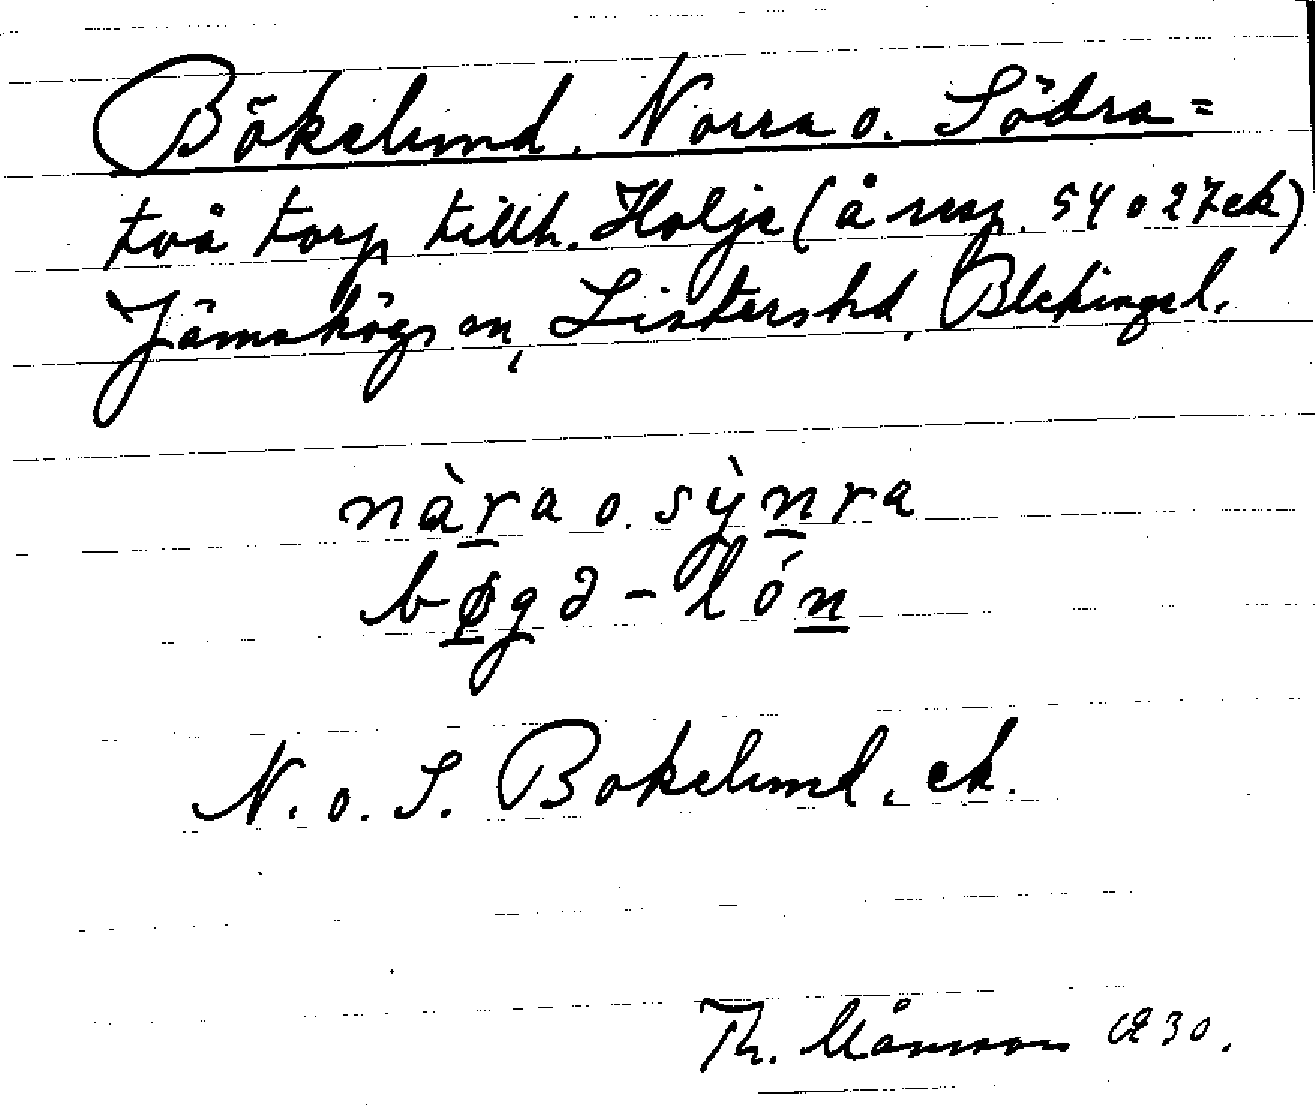 Bökelund, Norra o. Södra=
två torp tillh. Holje (å resp. 54 o 27 ek)
Jämshögs sn, Listers hd, Blekinge l.
nàra o. sỳnra
bøgə-lón
N. o. S. Bökelund, ek.
Th. Månsson 1930.